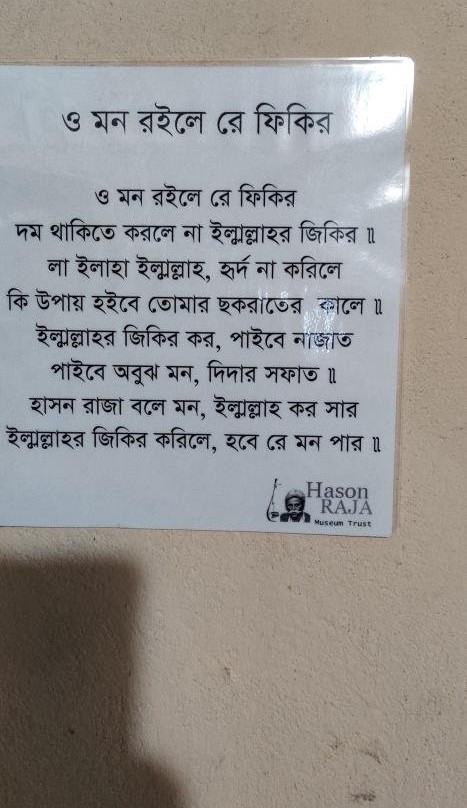 ও মন রইলে রে ফিকির
ও মন রইলে রে ফিকির
দম থাকিতে করলে না ইল্লাল্লাহর জিকির ॥
লা ইলাহা ইল্লাল্লাহ, হর্দ না করিলে
কি উপায় হইবে তোমার ছকরাতের কালে ॥
ইল্লাল্লাহর জিকির কর, পাইবে নাজাত
পাইবে অবুঝ মন, দিদার সফাত ॥
হাসন রাজা বলে মন, ইল্লাল্লাহ কর সার
ইল্লাল্লাহর জিকির করিলে, হবে রে মন পার ॥
Hason
RAJA
Museum Trust